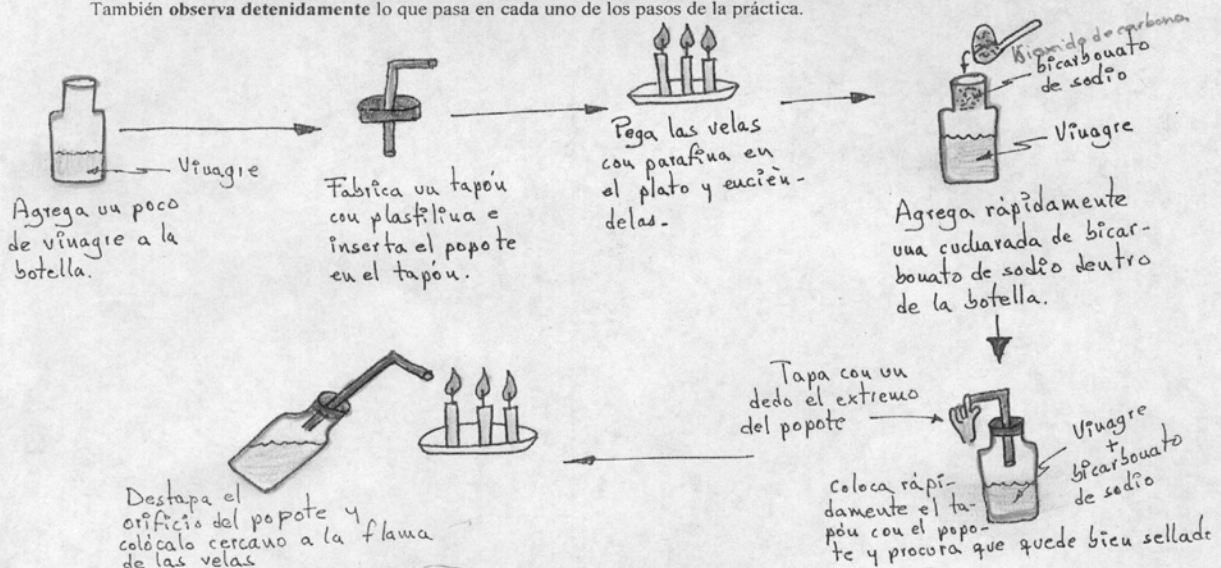 También observa detenidamente lo que pasa en cada uno de los pasos de la práctica.
Vinagre
Agrega un poco
de vinagre a la
botella.
Fabrica un tapón
con plastilina e
inserta el popote
en el tapón.
Pega las velas
con parafina en
el plato y encién-
delas.
Bioxido de carbono
bicarbonato
de sodio
Vinagre
Agrega rápidamente
una cucharada de bicar-
bonato de sodio dentro
de la botella.
Tapa con un
dedo el extremo
del popote
Vinagre
+
bicarbonato
de sodio
Coloca rápi-
damente el ta-
pón con el popo-
te y procura que quede bien sellado
Destapa el
orificio del popote y
colócalo cercano a la flama
de las velas